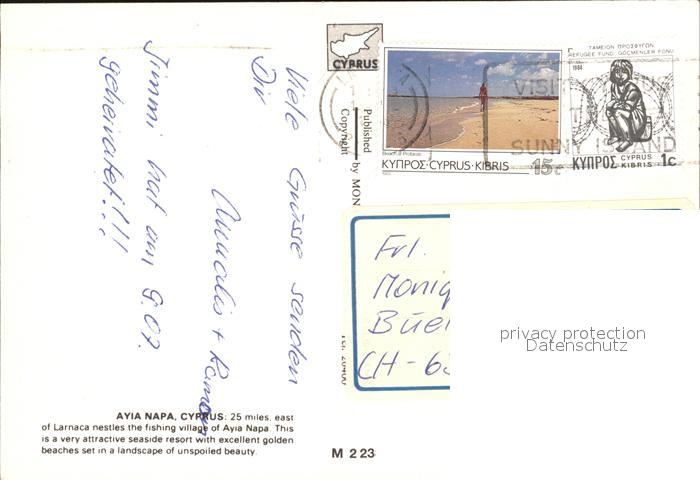 Viele Grüsse senden
Dir
Jimmi hat am 9.07.
geheiratet!!!
AYIA NAPA, CYPRUS: 25 miles. east
of Larnaca nestles the fishing village of Ayia Napa. This
is a very attractive seaside resort with excellent golden
beaches set in a landscape of unspoiled beauty.
CYPRUS
Published
Copyright by MON
M 2 23
ΚΥΠΡΟΣ·CYPRUS·KIBRIS 15c
ΤΑΜΕΙΟΝ ΠΡΟΣΦΥΓΩΝ
REFUGEE FUND GÖÇMENLER FONU
1984
ΚΥΠΡΟΣ CYPRUS KIBRIS 1c
VISIT
SUNNY ISLAND
Frl.
Moniq
Büel
CH-63
privacy protection
Datenschutz